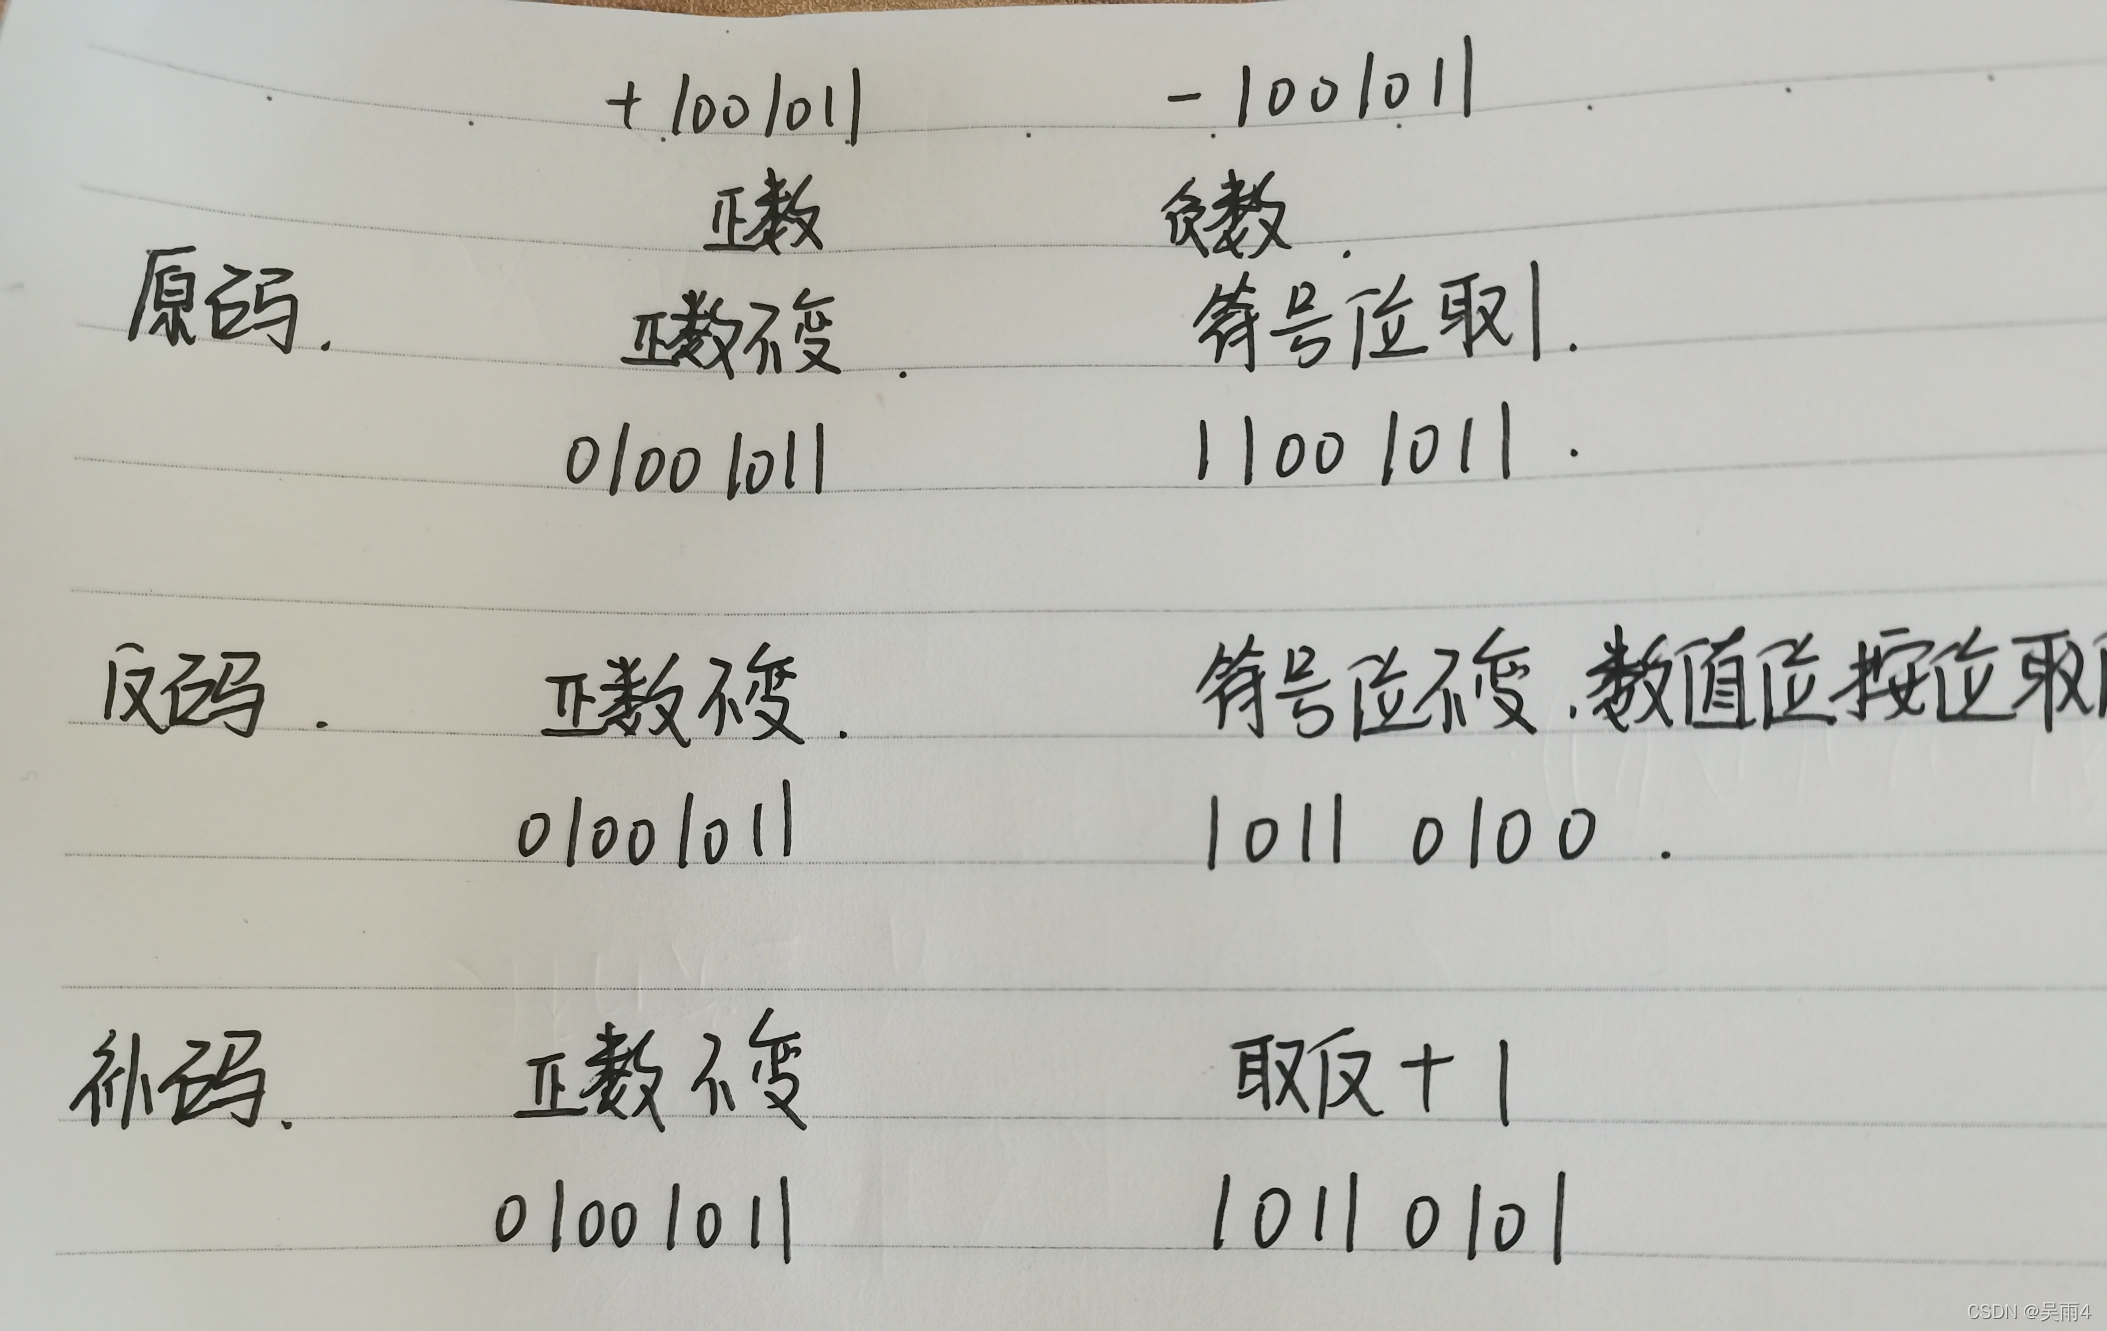 +1001011 -1001011
正数 负数.
原码. 正数不变. 符号位取1.
01001011 11001011.
反码. 正数不变. 符号位不变.数值位按位取
01001011 1011 0100.
补码. 正数不变 取反+1
01001011 1011 0101
CSDN @吴雨4